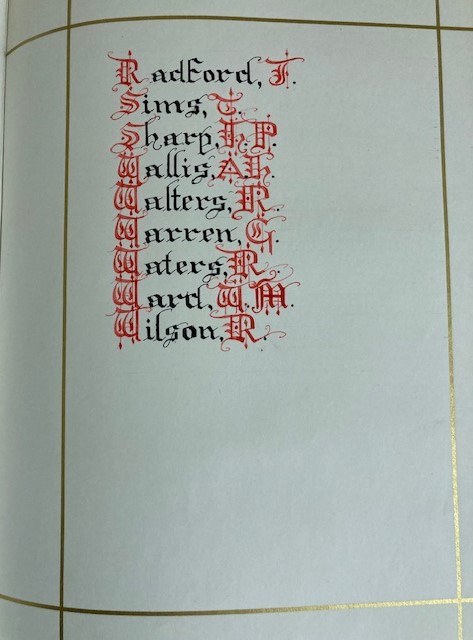 Radford, T.
Sims, T.
Sharp, H. P.
Wallis, A. H.
Walters, R.
Warren, G.
Waters, R.
Ward, W. M.
Wilson, R.